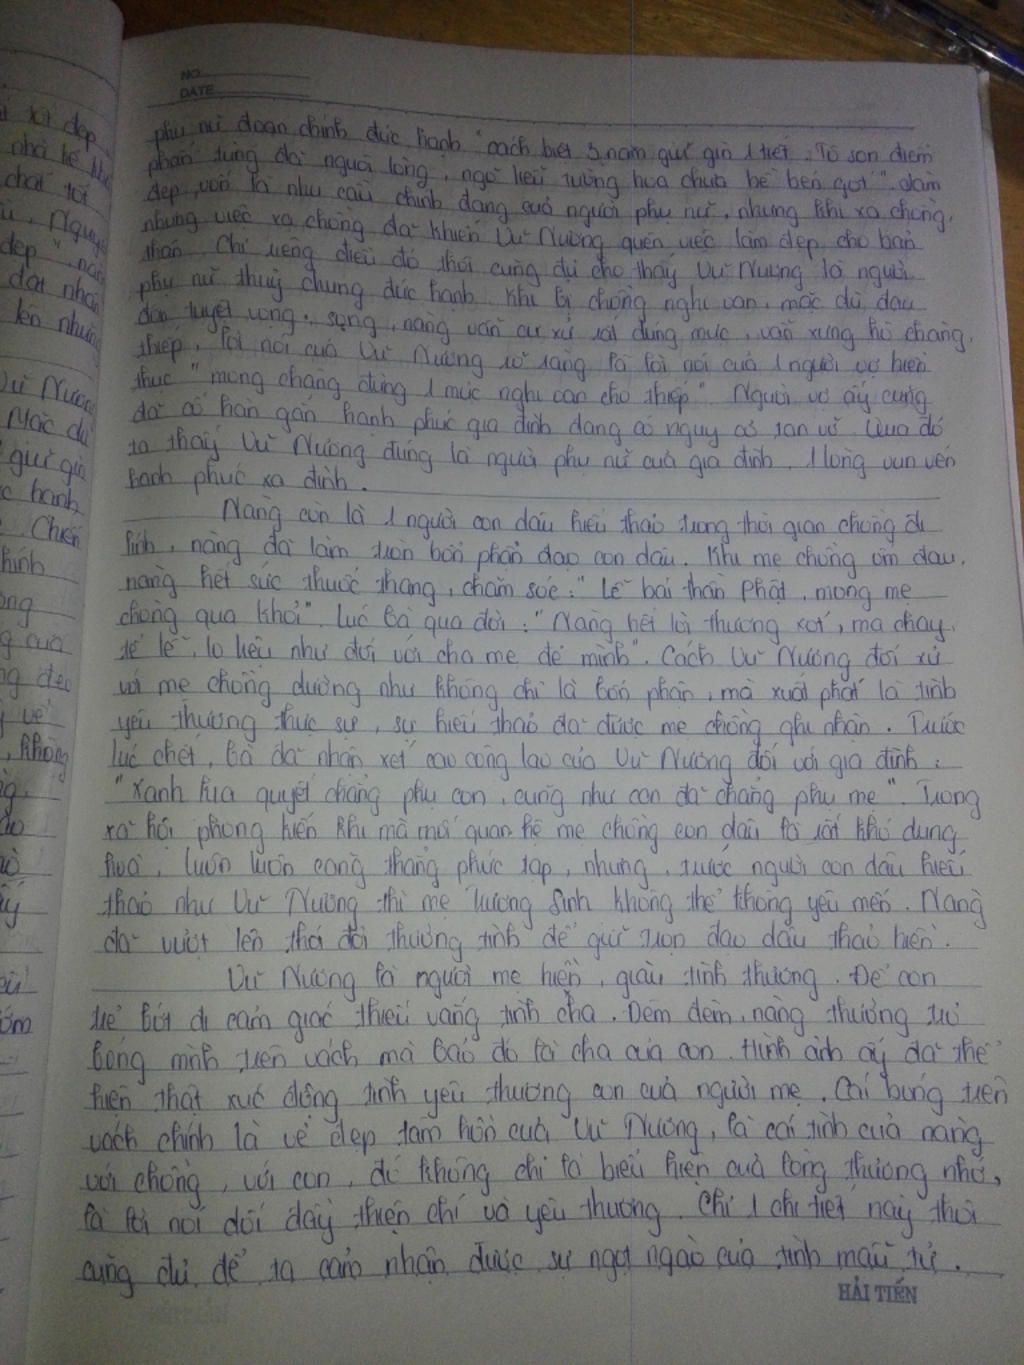 NO.
DATE
phụ nữ đoan chính đức hạnh "cách biệt 3 năm giữ gìn 1 tiết. Tô son điểm
phấn từng đã nguôi lòng, ngõ liễu tường hoa chưa hề bén gót". Làm
đẹp, vốn là nhu cầu chính đáng của người phụ nữ, nhưng khi xa chồng,
nhưng việc xa chồng đã khiến Vũ Nương quên việc làm đẹp cho bản
thân. Chỉ riêng điều đó thôi cũng đủ cho thấy Vũ Nương là người
phụ nữ thuỷ chung đức hạnh. Khi bị chồng nghi oan, mặc dù đau
đớn tuyệt vọng, song, nàng vẫn cư xử rất đúng mực, vẫn xưng hô chàng,
thiếp, lời nói của Vũ Nương rõ ràng là lời nói của 1 người vợ hiền
thục "mong chàng đừng 1 mực nghi oan cho thiếp". Người vợ ấy cũng
đã cố hàn gắn hạnh phúc gia đình đang có nguy cơ tan vỡ. Qua đó
ta thấy Vũ Nương đúng là người phụ nữ của gia đình, 1 lòng vun vén
hạnh phúc gia đình.
Nàng còn là 1 người con dâu hiếu thảo trong thời gian chồng đi
lính, nàng đã làm tròn bổn phận đạo con dâu. Khi mẹ chồng ốm đau,
nàng hết sức thuốc thang, chăm sóc: "Lễ bái thần Phật, mong mẹ
chồng qua khỏi". Lúc bà qua đời: "Nàng hết lời thương xót, ma chay,
tế lễ, lo liệu như đối với cha mẹ đẻ mình". Cách Vũ Nương đối xử
với mẹ chồng dường như không chỉ là bổn phận, mà xuất phát là tình
yêu thương thực sự, sự hiếu thảo đã được mẹ chồng ghi nhận. Trước
lúc chết, bà đã nhận xét cao công lao của Vũ Nương đối với gia đình:
"Xanh kia quyết chẳng phụ con, cũng như con đã chẳng phụ mẹ". Trong
xã hội phong kiến khi mà mối quan hệ mẹ chồng con dâu là rất khó dung
hoà, luôn luôn căng thẳng phức tạp, nhưng, trước người con dâu hiếu
thảo như Vũ Nương thì mẹ Trương Sinh không thể không yêu mến. Nàng
đã vượt lên thói đời thường tình để giữ trọn đạo dâu thảo hiền.
Vũ Nương là người mẹ hiền, giàu tình thương. Để con
trẻ bớt đi cảm giác thiếu vắng tình cha. Đêm đêm, nàng thường trỏ
bóng mình trên vách mà bảo đó là cha của con. Hình ảnh ấy đã thể
hiện thật xúc động tình yêu thương con của người mẹ. Cái bóng trên
vách chính là vẻ đẹp tâm hồn của Vũ Nương, là cái tình của nàng
với chồng, với con, đó không chỉ là biểu hiện của lòng thương nhớ,
là lời nói dối đầy thiện chí và yêu thương. Chỉ 1 chi tiết này thôi
cũng đủ để ta cảm nhận được sự ngọt ngào của tình mẫu tử.
HẢI TIẾN